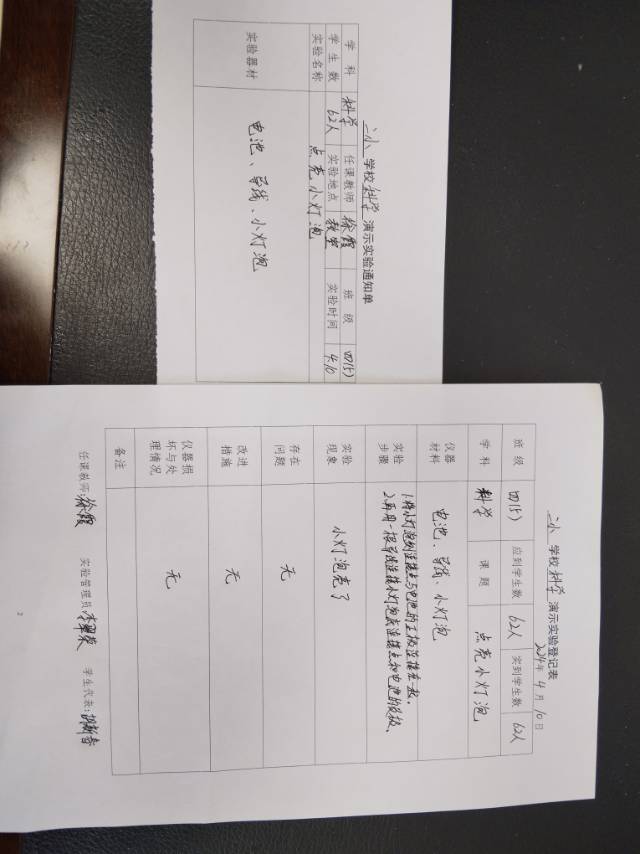 二小 学校 科学 演示实验通知单
学 科 科学 任课教师 徐霞 班 级 四(5)
学 生 数 62人 实验地点 教室 实验时间 4.10
实验名称 点亮小灯泡
实验器材 电池、导线、小灯泡
二小 学校 科学 演示实验登记表
2024年 4 月 10 日
班 级 四(5) 应到学生数 62人 实到学生数 62人
学 科 科学 课 题 点亮小灯泡
仪器材料 电池、导线、小灯泡
实验步骤 1.将小灯泡的连接点与电池的正极连接在一起。
2.再用一根导线连接小灯泡底连接点和电池的负极。
实验现象 小灯泡亮了
存在问题 无
改进措施 无
仪器损坏与处理情况 无
备注
任课教师:徐霞 实验管理员: 学生代表:
2